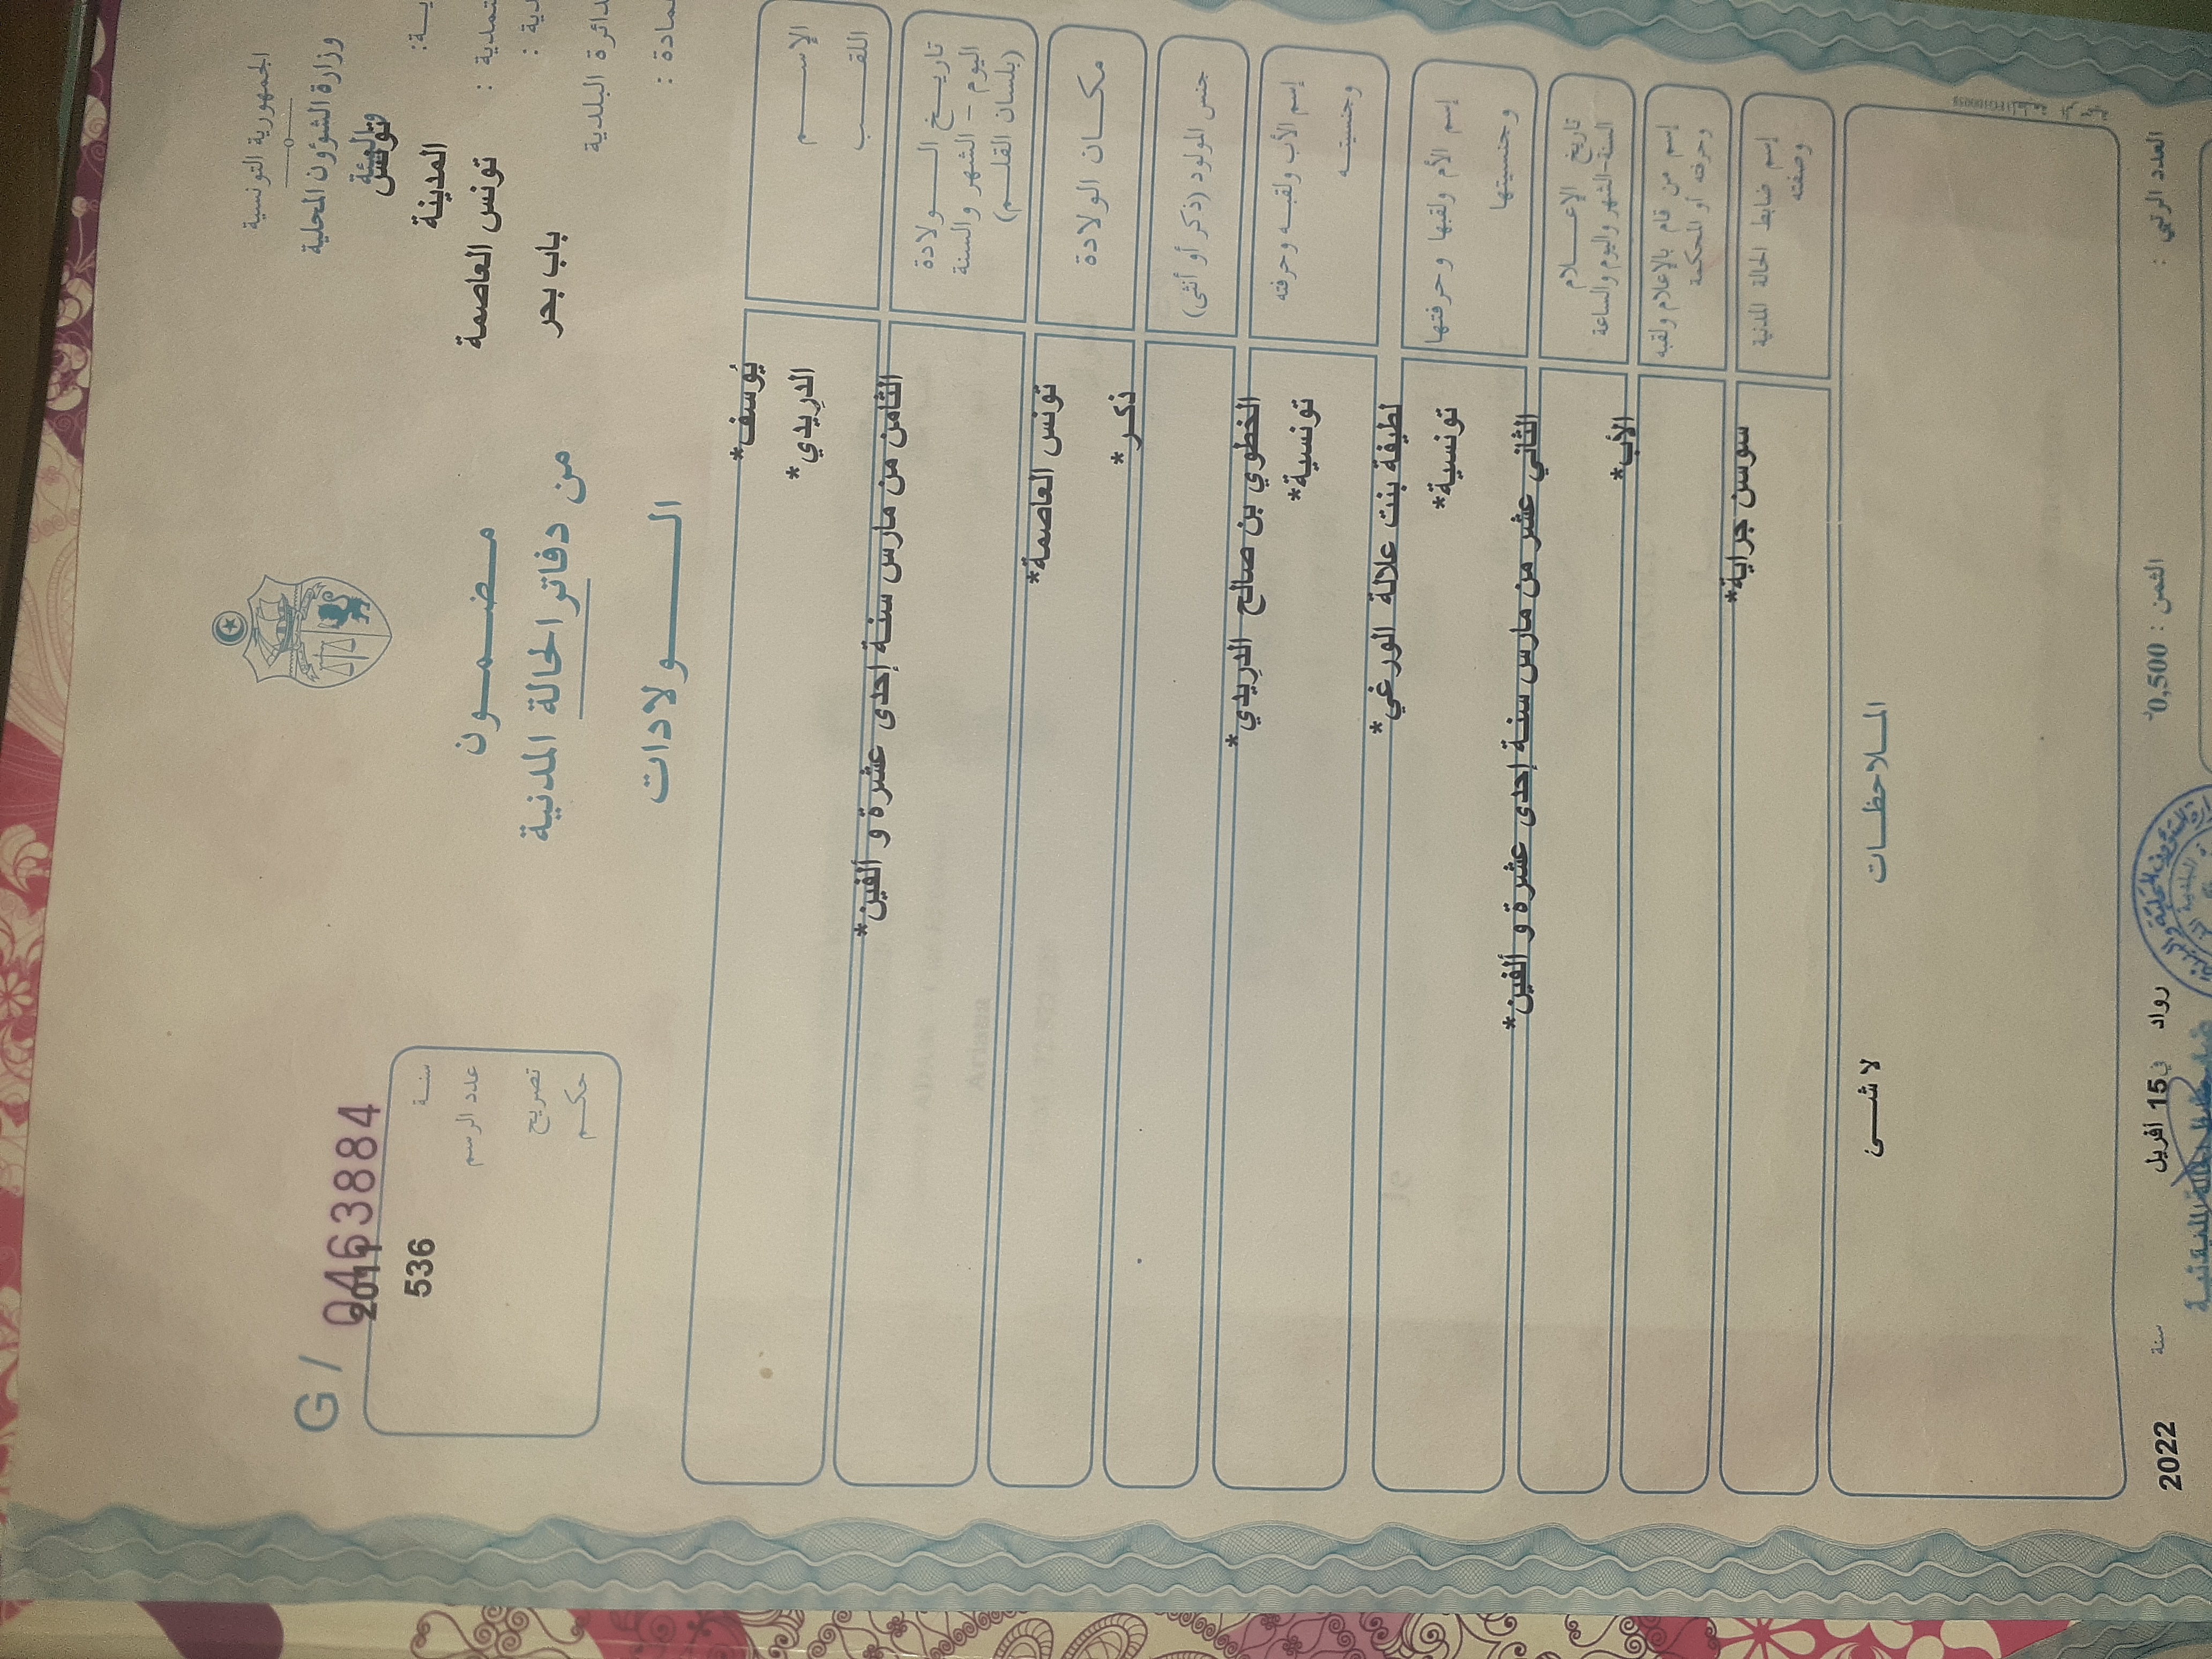 الجمهورية التونسية
وزارة الشؤون المحلية
والبيئة
تونس
المدينة
تونس العاصمة
باب بحر
G / 0463884
سنة 2011
عدد الرسم 536
تصريح
حكم
مضمون
من دفاتر الحالة المدنية
الولادات
الإسم يُوسف*
اللقب الدريدي*
تاريخ الولادة
اليوم - الشهر والسنة
(بلسان القلم)
الثامن من مارس سنة إحدى عشرة و ألفين*
مكان الولادة تونس العاصمة*
جنس المولود (ذكر أو أنثى) ذكر*
إسم الأب ولقبه وحرفته الخطوي بن صالح الدريدي*
وجنسيته تونسية*
إسم الأم ولقبها وحرفتها لطيفة بنت علالة الورغي*
وجنسيتها تونسية*
تاريخ الإعلام
السنة-الشهر واليوم والساعة
الثاني عشر من مارس سنة إحدى عشرة و ألفين*
إسم من قام بالإعلام ولقبه
وحرفته أو المحكمة
الأب*
إسم ضابط الحالة المدنية
وصفته
سوسن جراية*
الملاحظات
لا شىء
رواد في 15 أفريل سنة 2022
العدد الرتبي :
الثمن : 0,500